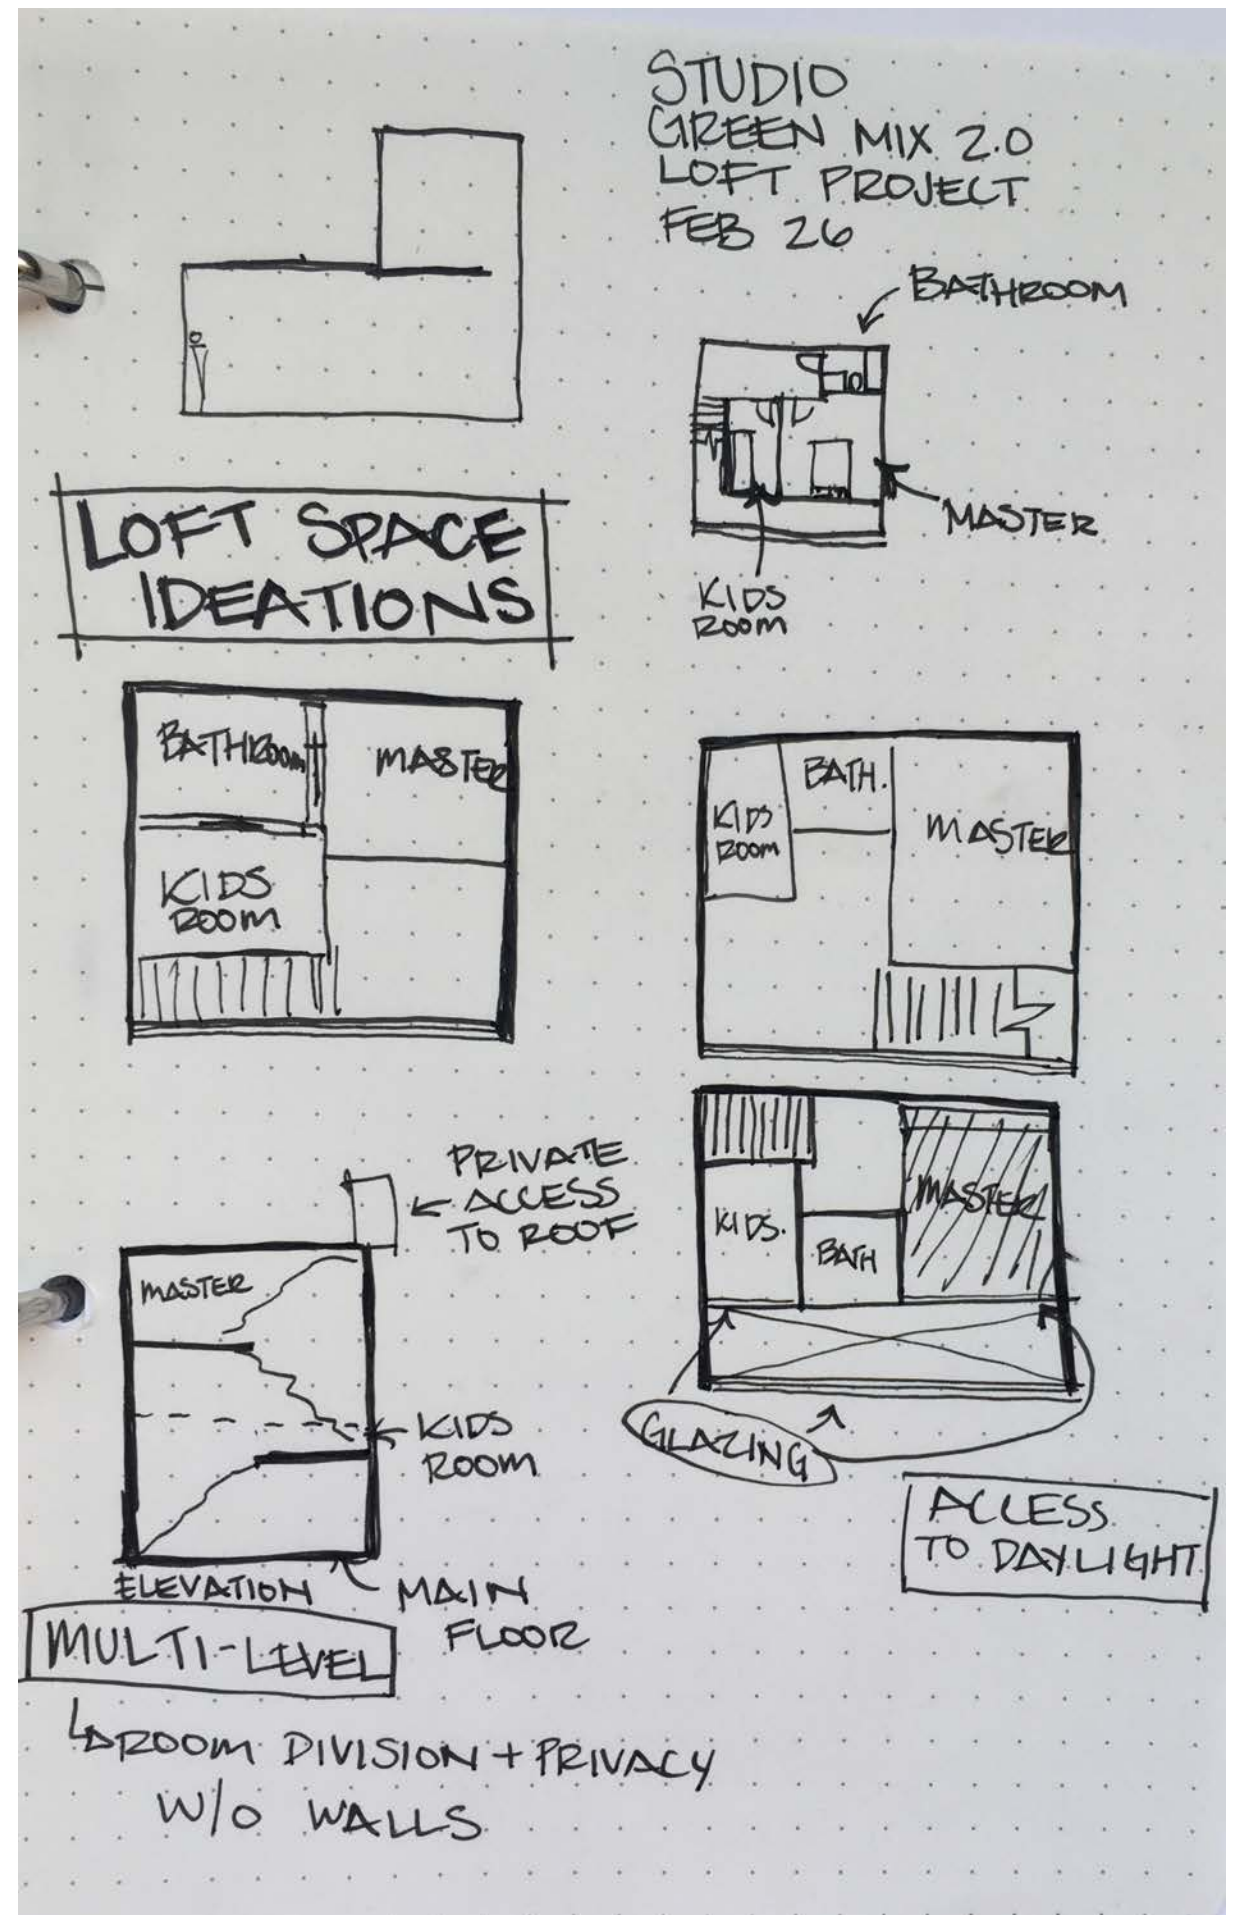 STUDIO
GREEN MIX 2.0
LOFT PROJECT
FEB 26
BATHROOM
MASTER
KIDS
ROOM
LOFT SPACE
IDEATIONS
BATHROOM
MASTER
KIDS
ROOM
KIDS
ROOM
BATH.
MASTER
PRIVATE
ACCESS
TO ROOF
MASTER
KIDS
ROOM
ELEVATION
MAIN
FLOOR
MULTI-LEVEL
ROOM DIVISION + PRIVACY
W/O WALLS
KIDS.
BATH
MASTER
GLAZING
ACCESS
TO DAYLIGHT